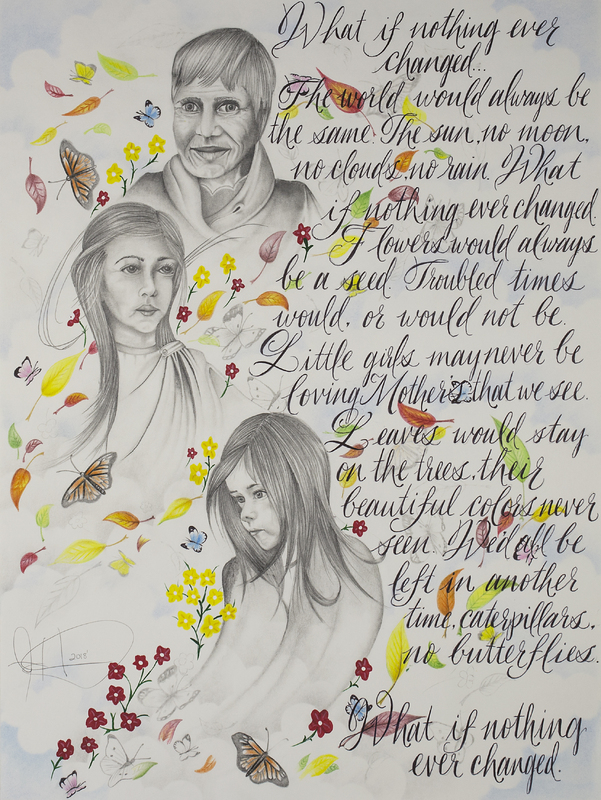 What if nothing ever
changed...
The world would always be
the same. The sun, no moon,
no clouds, no rain. What
if nothing ever changed.
Flowers would always
be a seed. Troubled times
would, or would not be.
Little girls may never be
loving Mothers that we see.
Leaves would stay
on the trees, their
beautiful colors never
seen. We'd all be
left in another
time, caterpillars,
no butterflies.
What if nothing
ever changed.
2013